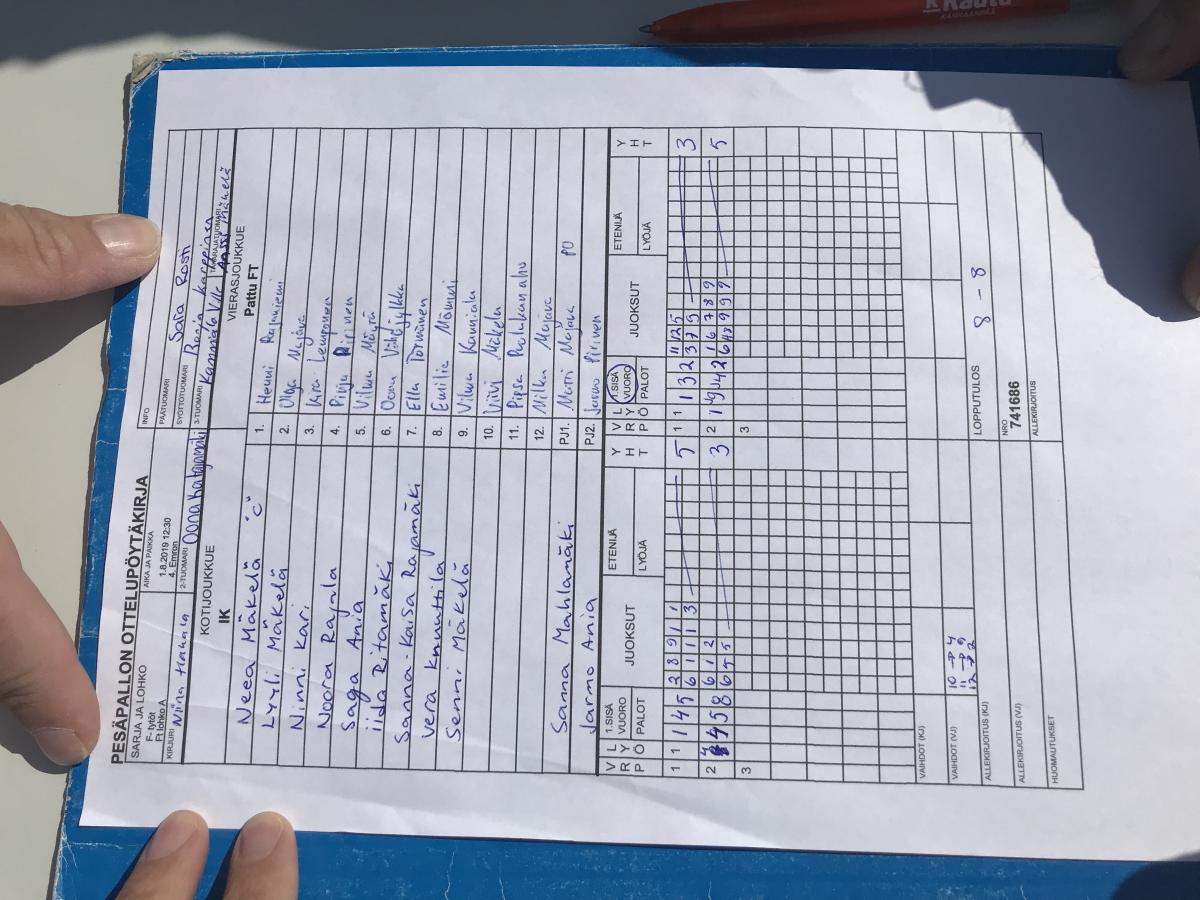 Rautu
KANKAANPÄÄ
PESÄPALLON OTTELUPÖYTÄKIRJA
SARJA JA LOHKO
F- tytöt
Ft lohko A
AIKA JA PAIKKA
1.8.2019 12:30
4. Emron
INFO
PÄÄTUOMARI
Sara Rosti
KIRJURI
Niina
2-TUOMARI
Oona Katajamäki
SYÖTTÖTUOMARI
Ronja Karppinen
3-TUOMARI
TAKARAJATUOMARI
Mäkelä
KOTIJOUKKUE
IK
VIERASJOUKKUE
Pattu FT
Neea Mäkelä "C"
1. Henni Rajaniemi
Lyyli Mäkelä
2. Olga Majava
Ninni Kari
3. Kira Lemponen
Noora Rajala
4. Pinja Piirinen
Saga Ania
5. Vilma Mäntylä
iida Ritamäki
6. Oona
Sanna-Kaisa Rajamäki
7. Ella Törmänen
Vera Knuuttila
8. Emilia Mömmi
Senni Mäkelä
9. Vilma
10. Viivi Mäkelä
11. Pipsa Paulukanaho
12. Milka Majava
Sanna Mahlamäki
PJ1. Matti Majava PO
Jarmo Ania
PJ2. Jarmo Piirinen
V R P
L Y Ö
1.SISÄ VUORO
PALOT
JUOKSUT
ETENIJÄ
LYÖJÄ
Y H T
V R P
L Y Ö
1.SISÄ VUORO
PALOT
JUOKSUT
ETENIJÄ
LYÖJÄ
Y H T
1 1 1 4 5 3 8 9 1 1 5
6 1 1 1 3
1 1 1 3 2 11 12 5 3
3 7 9
2 4 4 5 8 6 1 2 3
6 5 5
2 1 9 4 2 1 6 7 8 9 5
3
3
VAIHDOT (KJ)
VAIHDOT (VJ)
10 → 4
11 → 9
12 → 2
ALLEKIRJOITUS (KJ)
LOPPUTULOS
8 - 8
ALLEKIRJOITUS (VJ)
NRO
741686
HUOMAUTUKSET
ALLEKIRJOITUS